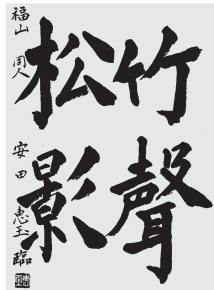 竹聲
松影
福山 同人 安田 恵玉 臨